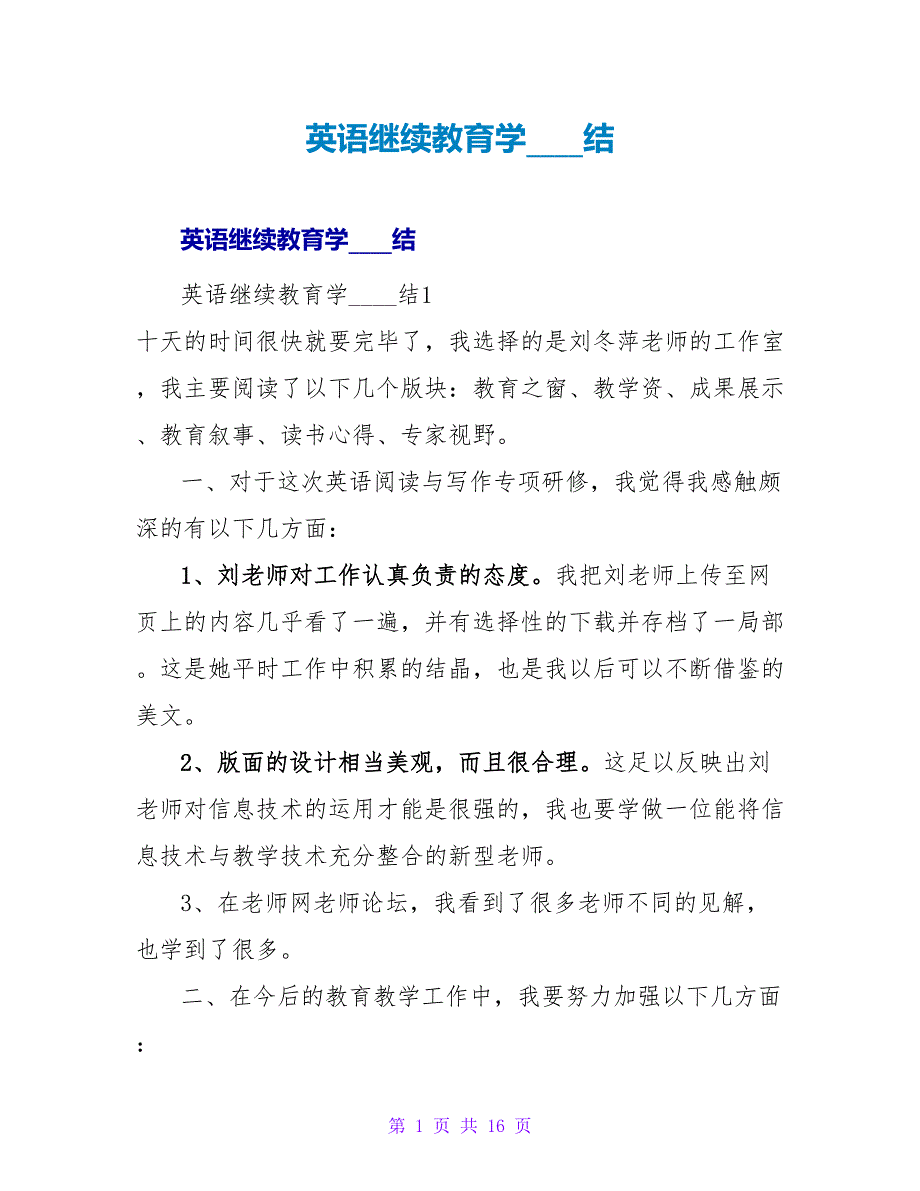 英语继续教育学____结
英语继续教育学____结
英语继续教育学____结1
十天的时间很快就要完毕了，我选择的是刘冬萍老师的工作室
，我主要阅读了以下几个版块：教育之窗、教学资、成果展示
、教育叙事、读书心得、专家视野。
一、对于这次英语阅读与写作专项研修，我觉得我感触颇
深的有以下几方面：
1、刘老师对工作认真负责的态度。我把刘老师上传至网
页上的内容几乎看了一遍，并有选择性的下载并存档了一局部
。这是她平时工作中积累的结晶，也是我以后可以不断借鉴的
美文。
2、版面的设计相当美观，而且很合理。这足以反映出刘
老师对信息技术的运用才能是很强的，我也要学做一位能将信
息技术与教学技术充分整合的新型老师。
3、在老师网老师论坛，我看到了很多老师不同的见解，
也学到了很多。
二、在今后的教育教学工作中，我要努力加强以下几方面
：
第 1 页 共 16 页